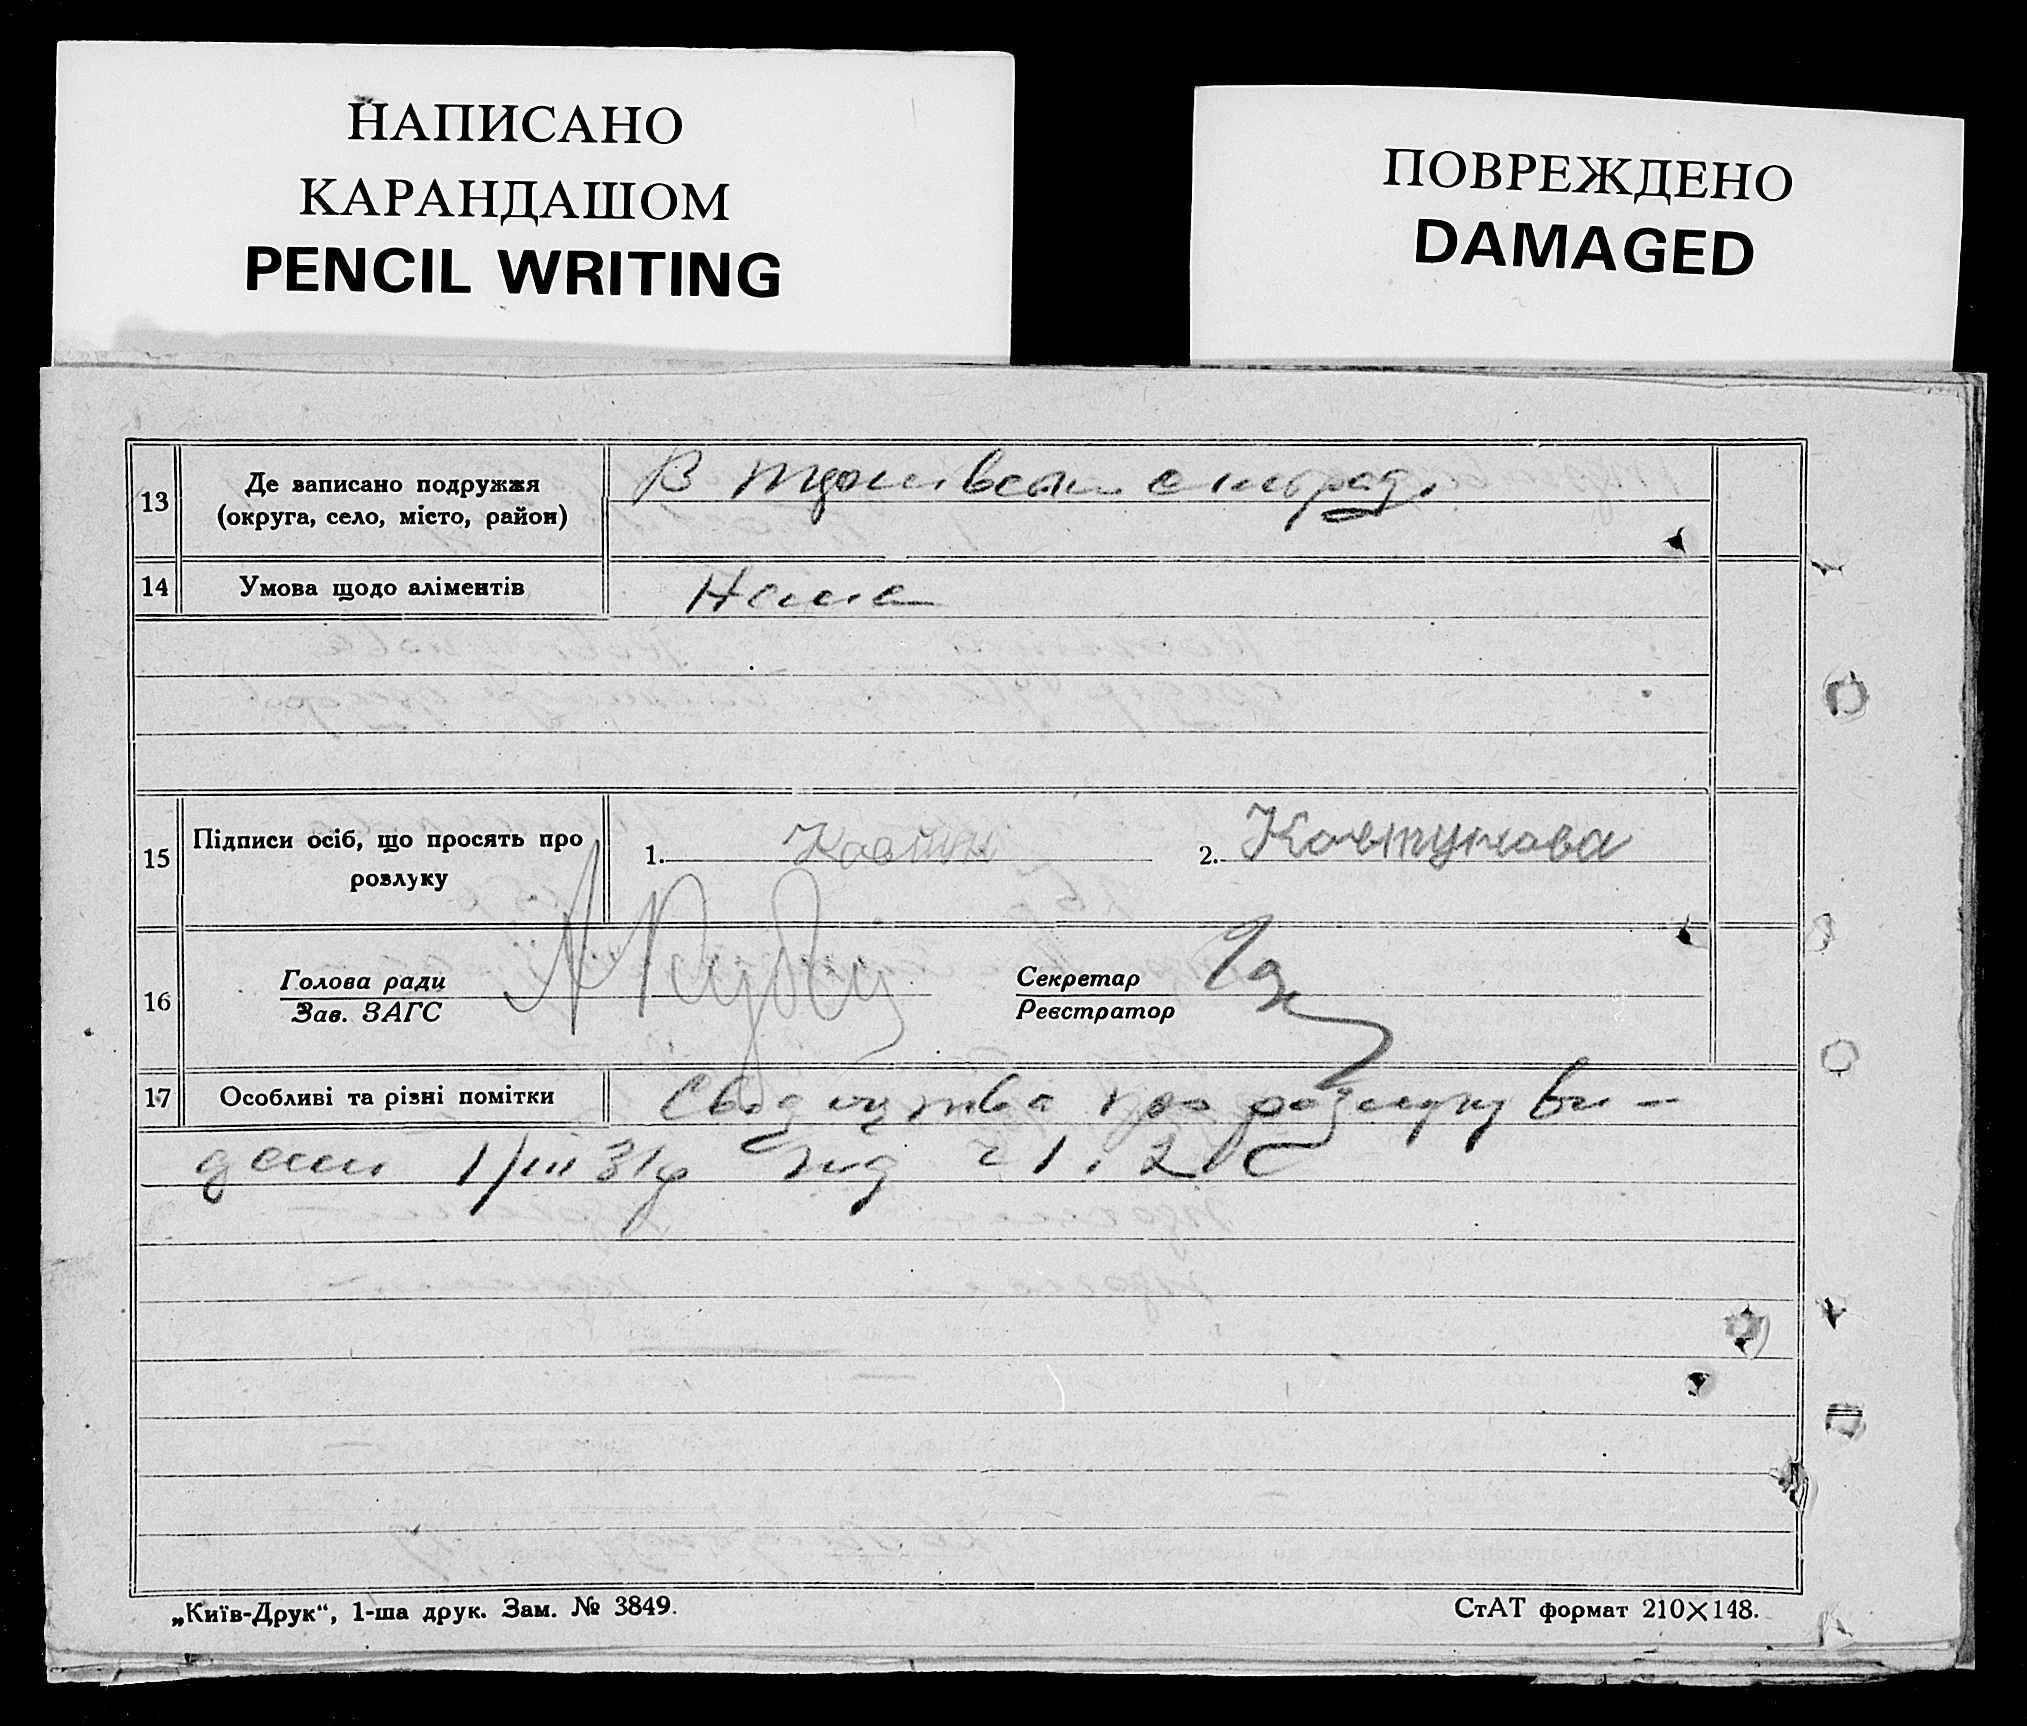 НАПИСАНО
КАРАНДАШОМ
PENCIL WRITING
ПОВРЕЖДЕНО
DAMAGED
13 Де записано подружжя
(округа, село, місто, район)
В
14 Умова щодо аліментів Нема
15 Підписи осіб, що просять про
розлуку
1. 2. Ковтунова
16 Голова ради
Зав. ЗАГС
Секретар
Реєстратор
17 Особливі та різні помітки Свідоцтва про розлуку ви-
дані 1/III 31р під
„Київ-Друк“, 1-ша друк. Зам. № 3849. СтАТ формат 210×148.